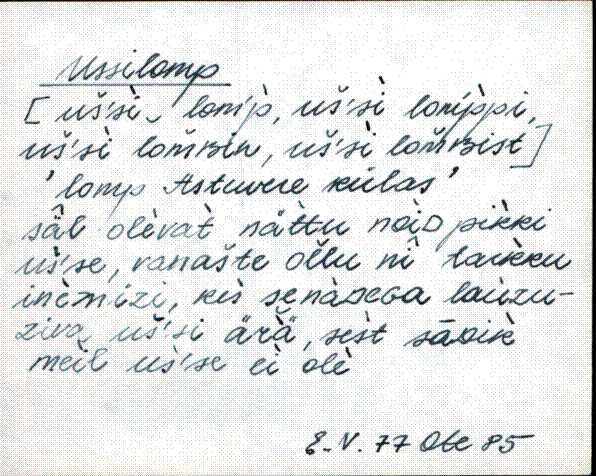 Ussilomp
[ uš̀si lom̀p, uš̀si lom̀ppi,
uš̀si lom̆ʙin, uš̀si lom̆ʙist]
'lomp Astuvere külas'
säl olèvaὶ nättu nèiᴅ pikki
uš̀se, vanašte ollu nî laikku
inèmizi, kes senàᴅega lauzu-
ziva uš̀si ärä, sest sāᴅik
meil uš̀se ei olè
E.V. 77 Ote 85